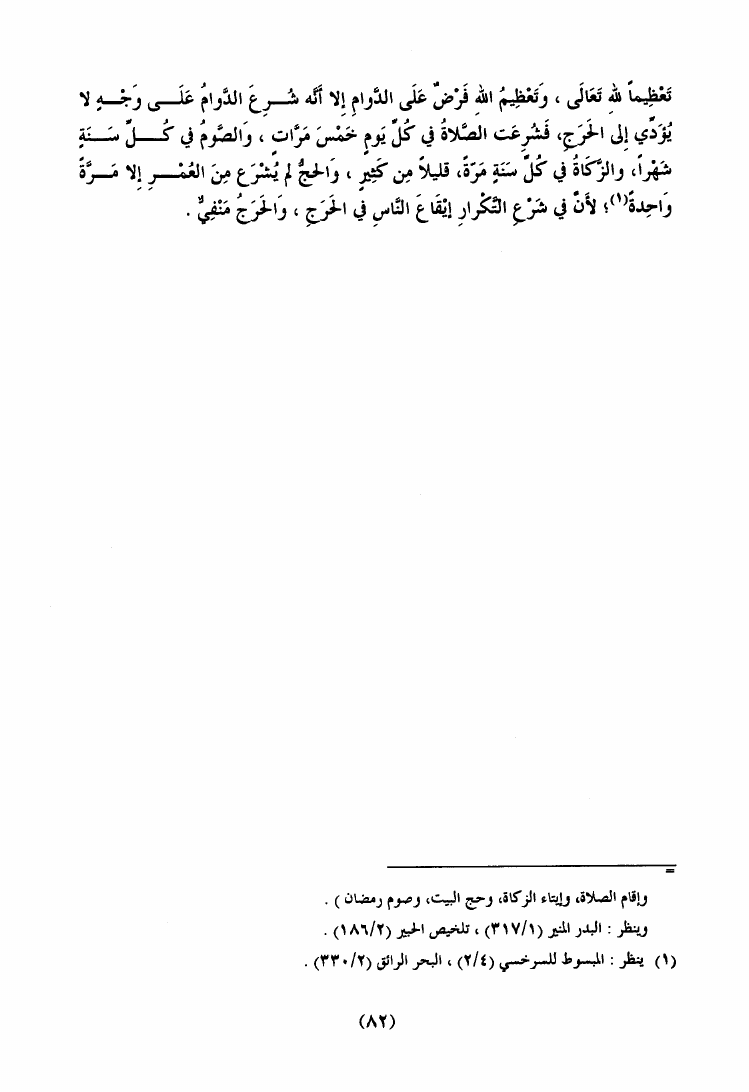 تَعْظِيماً للهِ تَعَالَى ، وَتَعْظِيمُ اللهِ فَرْضٌ عَلَى الدَّوامِ إِلا أَنَّه شُـرِعَ الدَّوامُ عَلَـى وَجْـهٍ لا
يُؤَدِّي إِلى الحَرَجِ، فَشُرِعَت الصَّلاةُ في كُلِّ يَومٍ خَمْسَ مَرَّاتٍ ، وَالصَّومُ في كُـلِّ سَـنَةٍ
شَهْراً، والزَّكَاةُ في كُلِّ سَنَةٍ مَرَةً، قليلاً مِن كَثِيرٍ ، وَالحجُّ لم يُشْرَع مِنَ العُمْـرِ إلا مَـرَّةً
وَاحِدةً(١)؛ لأَنَّ في شَرْعِ التَّكْرارِ إِيْقَاعَ النَّاسِ في الحَرَجِ ، وَالحَرَجُ مَنْفِيٌّ .
=
وإقام الصلاة، وإيتاء الزكاة، وحج البيت، وصوم رمضان ) .
وينظر : البدر المنير (٣١٧/١) ، تلخيص الحبير (١٨٦/٢) .
(١) ينظر : المبسوط للسرخسي (٢/٤) ، البحر الرائق (٣٣٠/٢) .
(٨٢)